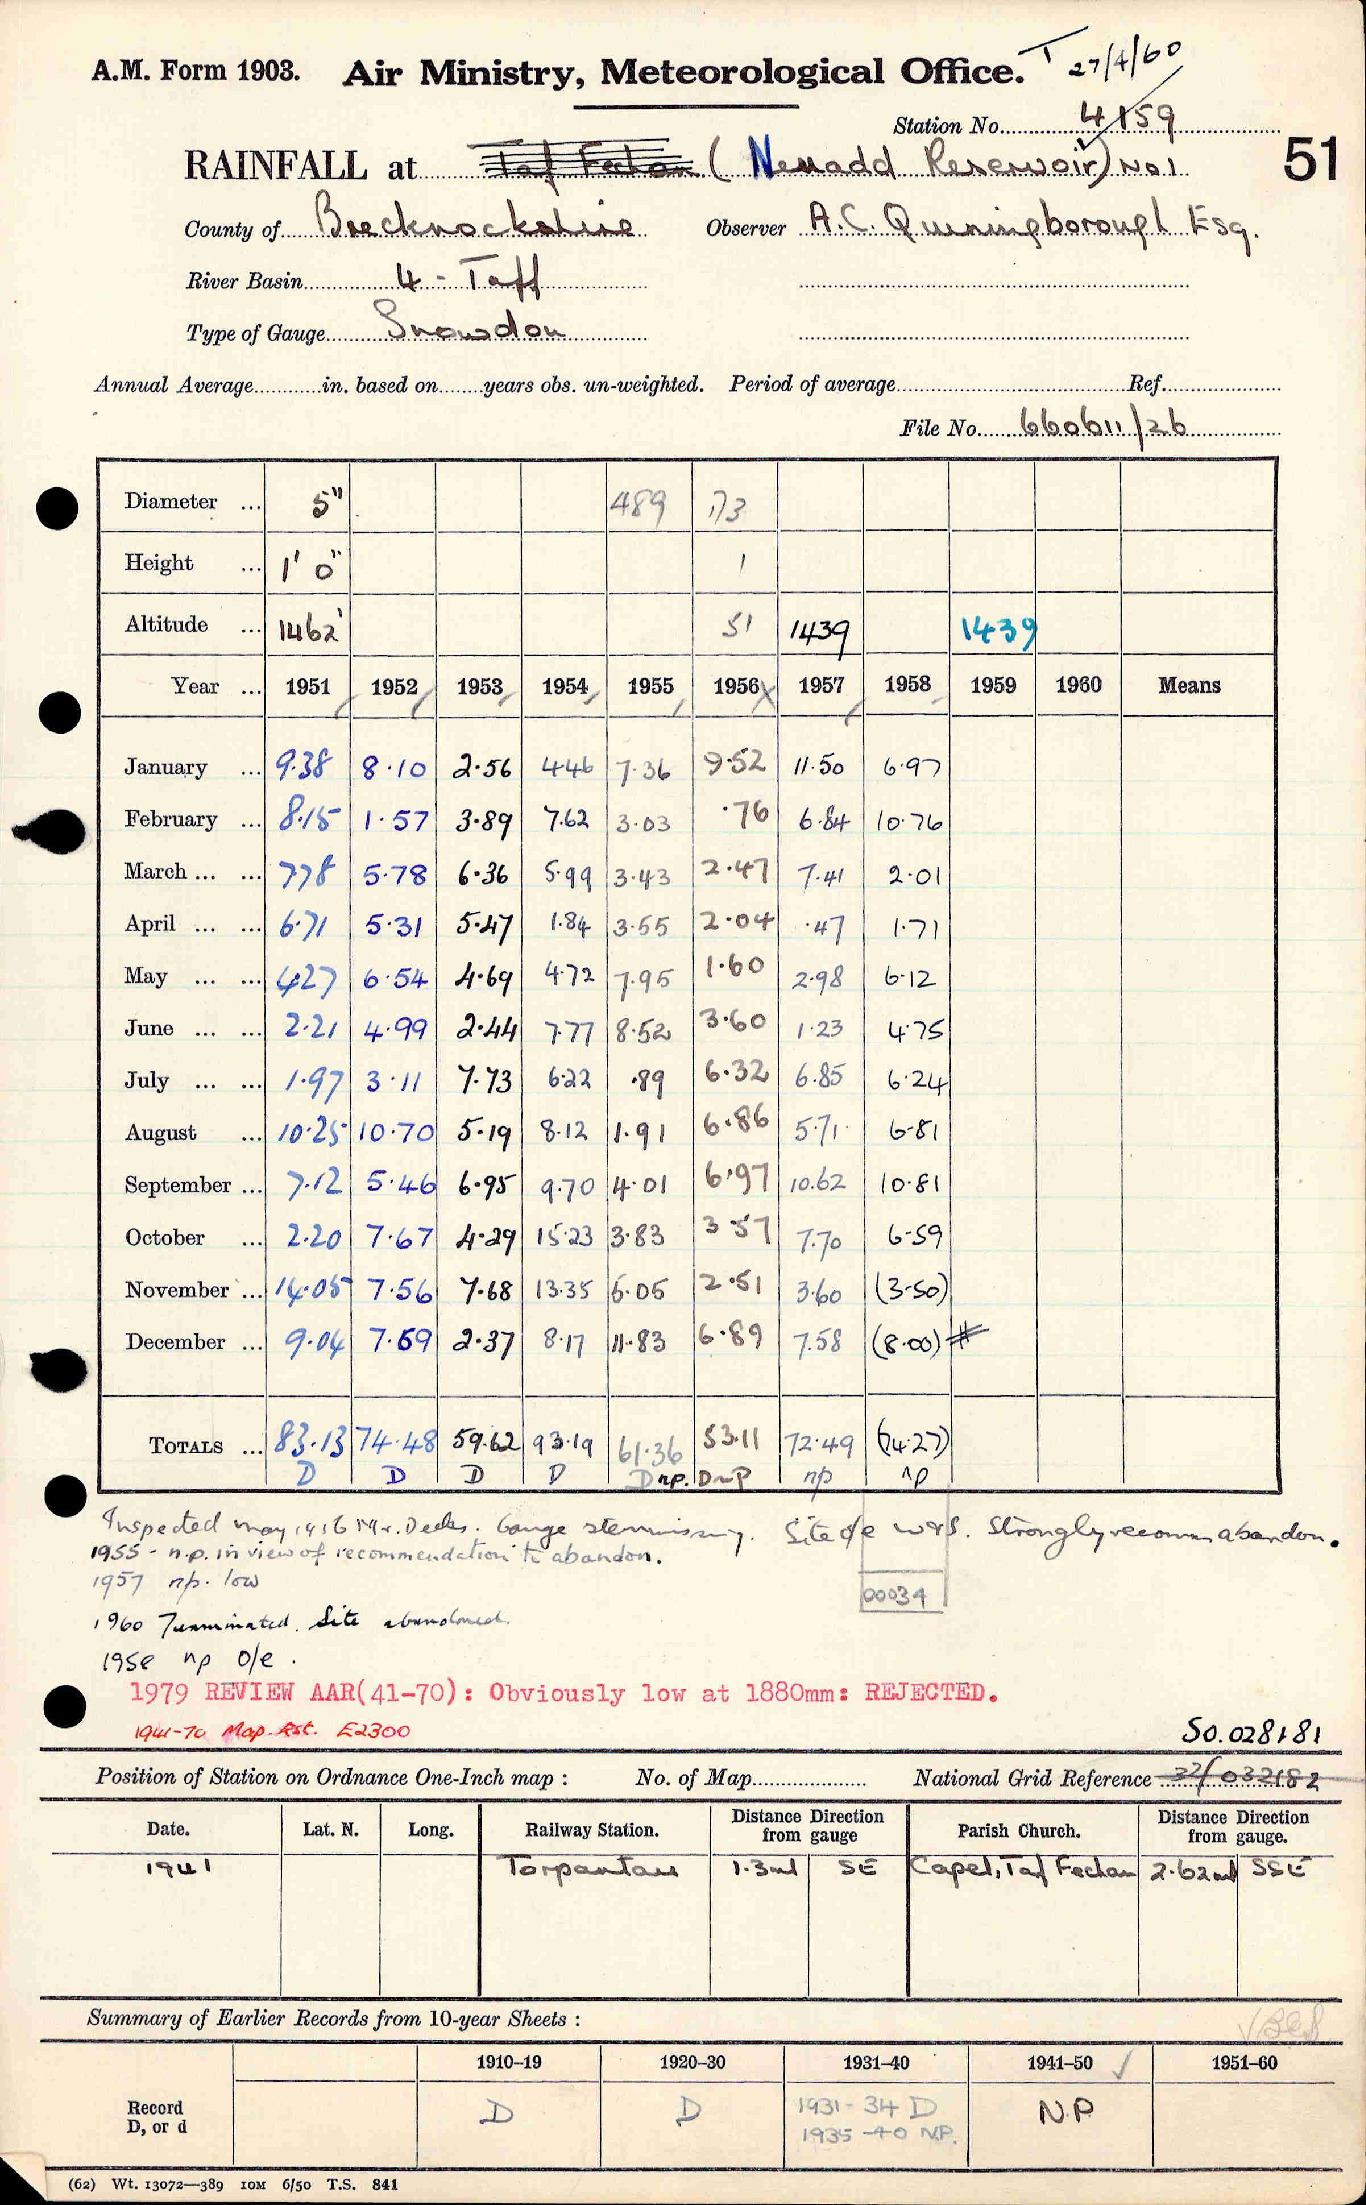 A.M. Form 1903. Air Ministry, Meteorological Office. T 27/4/60
Station No. 4159
RAINFALL at Taf Fechan (Neuadd Reservoir) No 1 51
County of Brecknockshire Observer A.C. Quiningborough Esq.
River Basin 4 - Taff
Type of Gauge Snowdon
Annual Average in. based on years obs. un-weighted. Period of average Ref.
File No. 660611/26
Diameter ... 5" 489 173
Height ... 1' 0" 1
Altitude ... 1462' 51 1439 1439
Year ... 1951 1952 1953 1954 1955 1956 1957 1958 1959 1960 Means
January ... 9.38 8.10 2.56 4.46 7.36 9.52 11.50 6.97
February ... 8.15 1.57 3.89 7.62 3.03 .76 6.84 10.76
March ... ... 7.78 5.78 6.36 5.99 3.43 2.47 7.41 2.01
April ... ... 6.71 5.31 5.47 1.84 3.55 2.04 .47 1.71
May ... ... 4.27 6.54 4.69 4.72 7.95 1.60 2.98 6.12
June ... ... 2.21 4.99 2.44 7.77 8.52 3.60 1.23 4.75
July ... ... 1.97 3.11 7.73 6.22 .89 6.32 6.85 6.24
August ... 10.25 10.70 5.19 8.12 1.91 6.86 5.71 6.81
September ... 7.12 5.46 6.95 9.70 4.01 6.97 10.62 10.81
October ... 2.20 7.67 4.29 15.23 3.83 3.57 7.70 6.59
November ... 14.05 7.56 7.68 13.35 5.05 2.51 3.60 (3.50)
December ... 9.04 7.69 2.37 8.17 11.83 6.89 7.58 (8.00) #
TOTALS ... 83.13 74.48 59.62 93.19 61.36 53.11 72.49 (74.27)
D D D D D np. D np np np
Inspected May 1956 Mr. Deeks. Gauge stem missing. Site o/e W & S. Strongly recomm abandon.
1955 - n.p. in view of recommendation to abandon.
1957 np. low
00034
1960 Terminated. Site abandoned.
1958 np o/e.
1979 REVIEW AAR(41-70): Obviously low at 1880mm: REJECTED.
1941-70 Map Est. E2300
SO.028181
Position of Station on Ordnance One-Inch map : No. of Map National Grid Reference 32/032182
Date. Lat. N. Long. Railway Station. Distance Direction from gauge Parish Church. Distance Direction from gauge.
1941 Torpantau 1.3ml SE Capel, Taf Fechan 2.62ml SSE
Summary of Earlier Records from 10-year Sheets :
1910-19 1920-30 1931-40 1941-50 1951-60
Record D, or d D D 1931-34 D N.P
1935-40 N.P.
(62) Wt. 13072—389 10M 6/50 T.S. 841